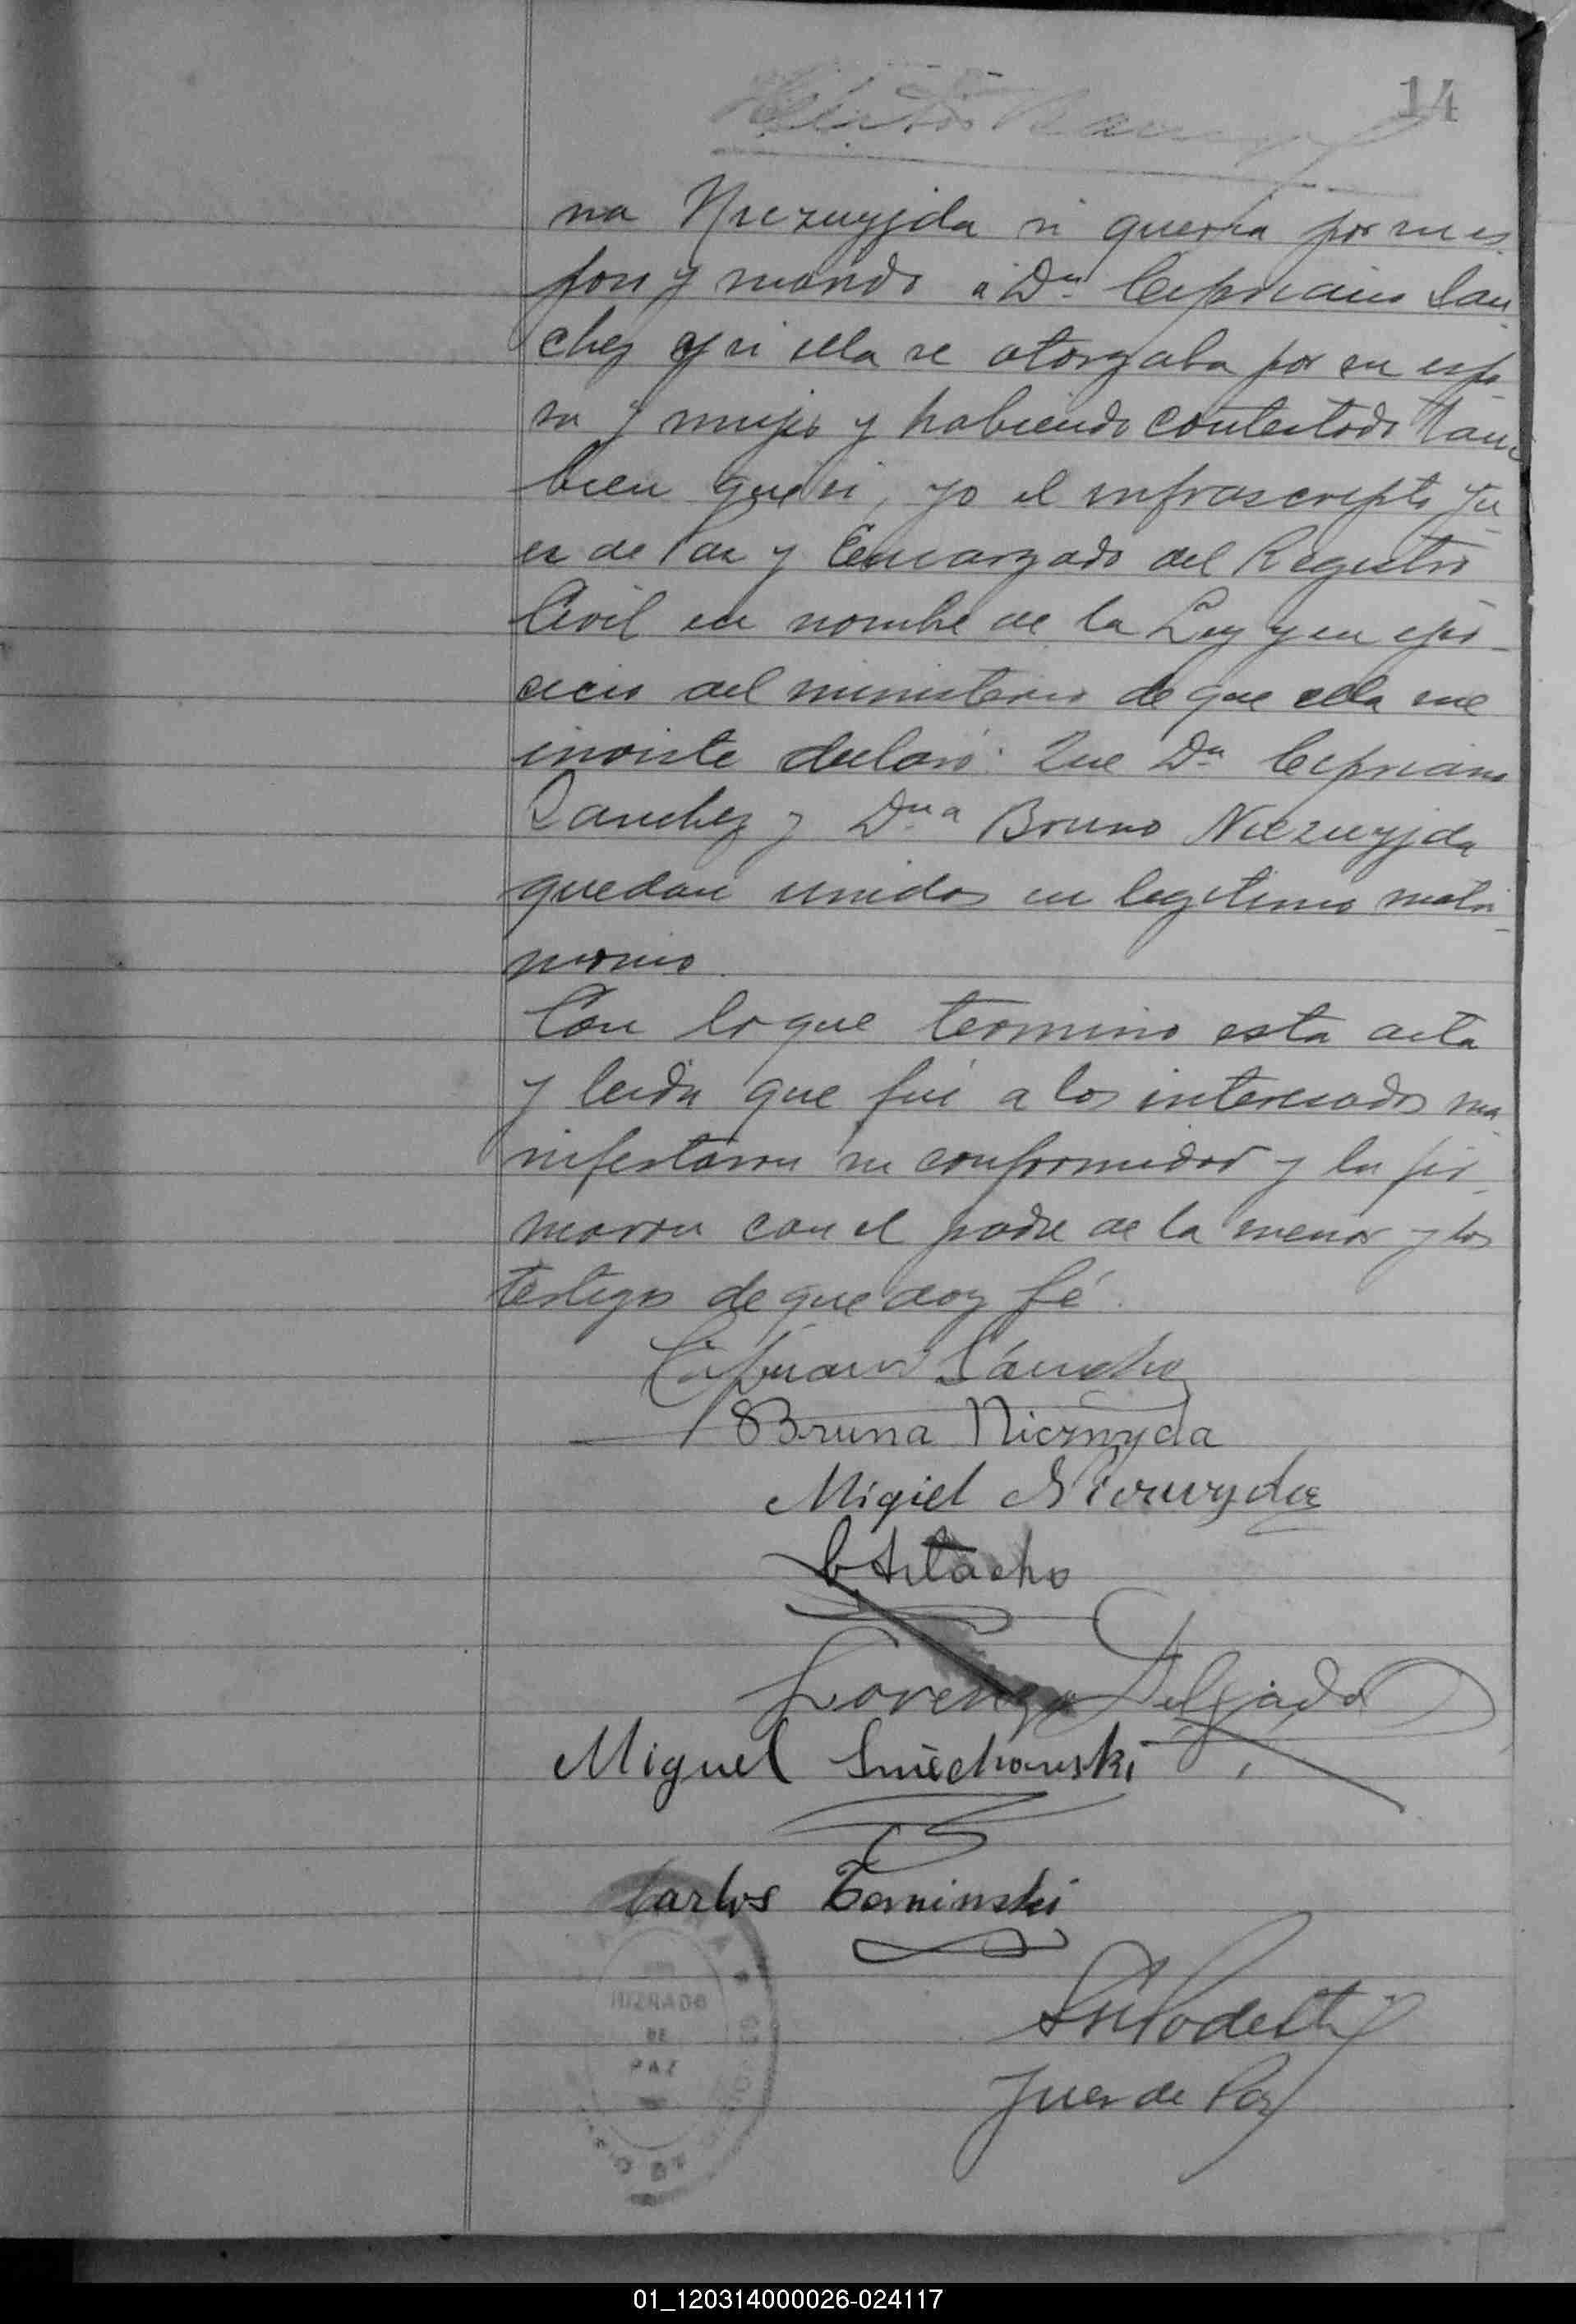 14
na Niezuyjda si querra por su es-
poso y marido á Dn Cipriano San-
chez y si ella se otorgaba por su espo-
sa y mujer y habiendo contestado tam-
bien que si, yo el infrascripto Ju-
ez de Paz y Encargado del Registro
Civil en nombre de la Ley y en ejer-
cicio del ministerio de que ella me
inviste declaro: Que Dn Cipriano
Sanchez y Dna Bruna Niezuyjda
quedan unidos en legitimo matri-
monio.
Con lo que termino esta acta
y leida que fué a los interesados ma-
nifestaron su conformidad y la fir-
maron con el padre de la menor y los
testigos de que doy fé.
Cipriano Sánchez
Bruna Niezwyda
Migiel Niezwyda
Artacho
Lorenzo Delgado
Miguel Smiechowski
Carlos Zeminski
JUZGADO
DE
PAZ
Podestá
Juez de Paz
01_120314000026-024117